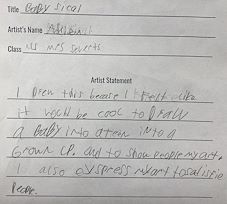 Title Baby sical
Artist's Name
Class Ms Mrs Severts
Artist Statement
I Drew this becase I Felt like
it would be cool to Draw
a BaBy into a teen into a
Grown UP. and to show people my art.
I also express my art to
People.